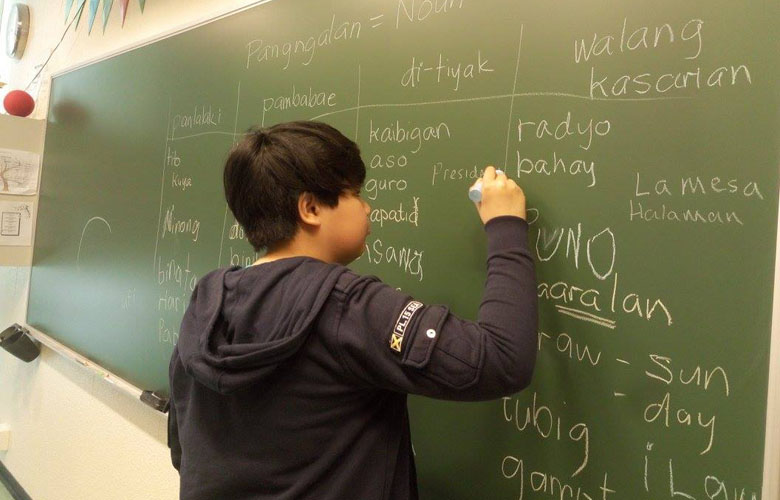 Pangngalan = Noun
panlalaki
pambabae
di-tiyak
walang
kasarian
tito
Kuya
Ninong
binata
kaibigan
aso
guro
Presid
apatid
asang
radyo
bahay
La mesa
Halaman
PUNO
aaralan
raw - sun
- day
tubig
iLaw
PL.15